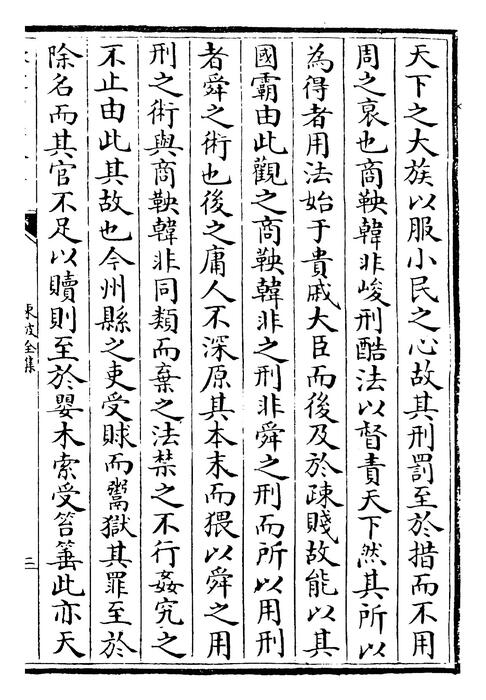 天下之大族以服小民之心故其刑罰至於措而不用
周之衰也商鞅韓非峻刑酷法以督責天下然其所以
為得者用法始于貴戚大臣而後及於疎賤故能以其
國霸由此觀之商鞅韓非之刑非舜之刑而所以用刑
者舜之術也後之庸人不深原其本末而猥以舜之用
刑之術與商鞅韓非同類而棄之法禁之不行姦宄之
不止由此其故也今州縣之吏受賕而鬻獄其罪至於
除名而其官不足以贖則至於嬰木索受笞箠此亦天
東坡全集
三